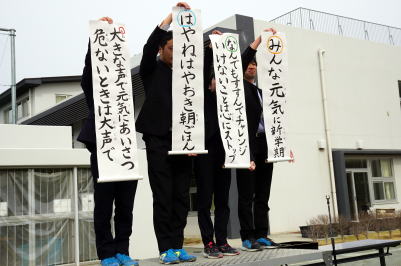 みんな元気に新学期
なんでもすすんでチャレンジ
いけないことは心にストップ
はやねはやおき朝ごはん
大きな声で元気にあいさつ
危ないときは大声で